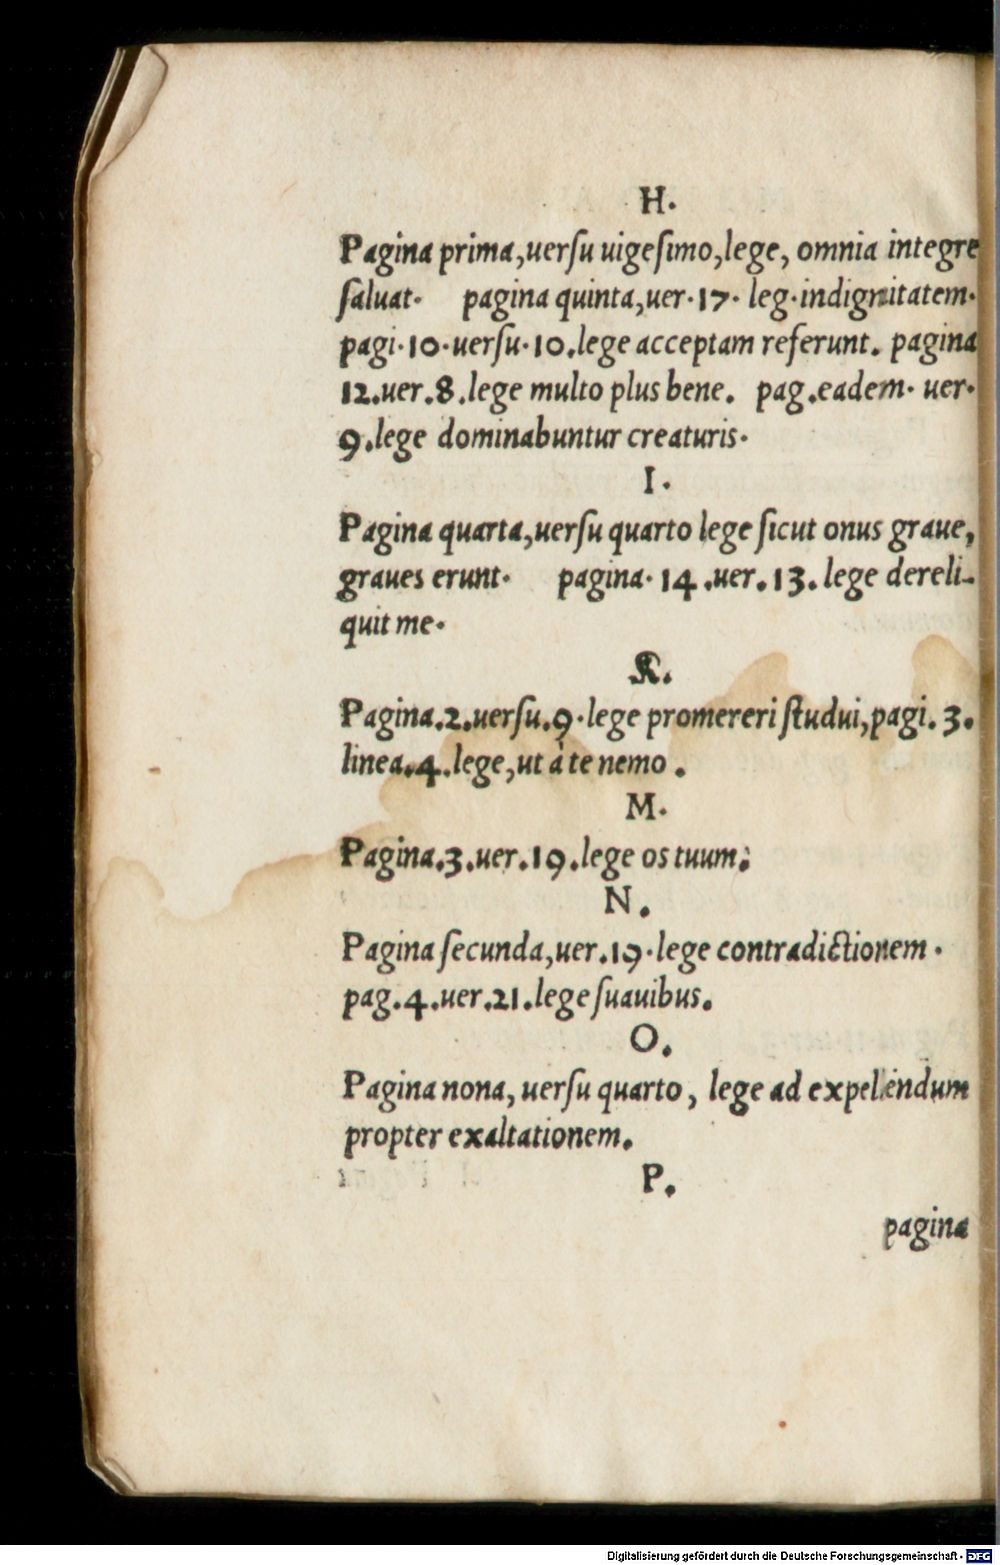 H.
Pagina prima,uerſu uigeſimo,lege, omnia integre
ſaluat· pagina quinta,uer·17· leg·indignitatem·
pagi·10·uerſu·10.lege acceptam referunt. pagina
12.uer.8.lege multo plus bene. pag.eadem· uer·
9.lege dominabuntur creaturis·
I·
Pagina quarta,uerſu quarto lege ſicut onus graue,
graues erunt· pagina· 14 .uer. 13. lege dereli-
quit me·
K.
Pagina.2.uerſu.9·lege promereri ſtudui,pagi. 3.
linea.4.lege,ut à te nemo .
M·
Pagina.3.uer.19.lege os tuum;
N.
Pagina ſecunda,uer.19·lege contradictionem ·
pag.4.uer.21.lege ſuauibus.
O.
Pagina nona, uerſu quarto, lege ad expellendum
propter exaltationem.
P.
pagina
Digitalisierung gefördert durch die Deutsche Forschungsgemeinschaft - DFG